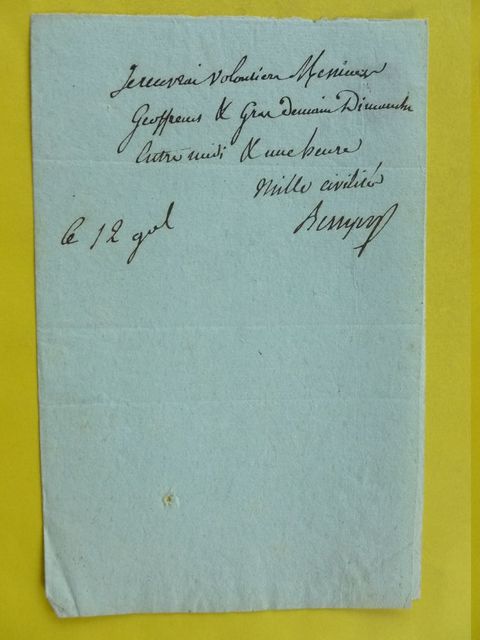 Je recevrai volontiers Messieurs
Geoffrens & Gras demain Dimanche
Entre midi & une heure
Mille civilités
le 12